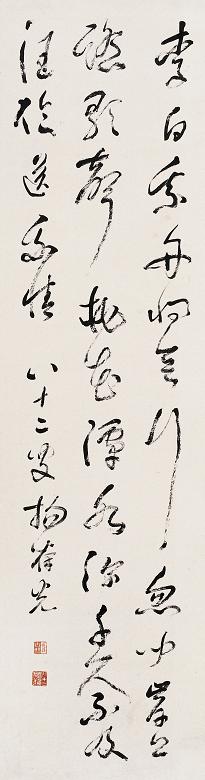 李白乘舟將欲行忽聞岸上
踏歌聲桃花潭水深千尺不及
汪倫送我情 八十二叟楊草仙